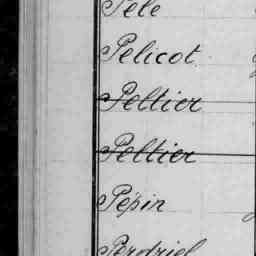 Pele
Pelicot
Peltier
Peltier
Pépin
Perdriel